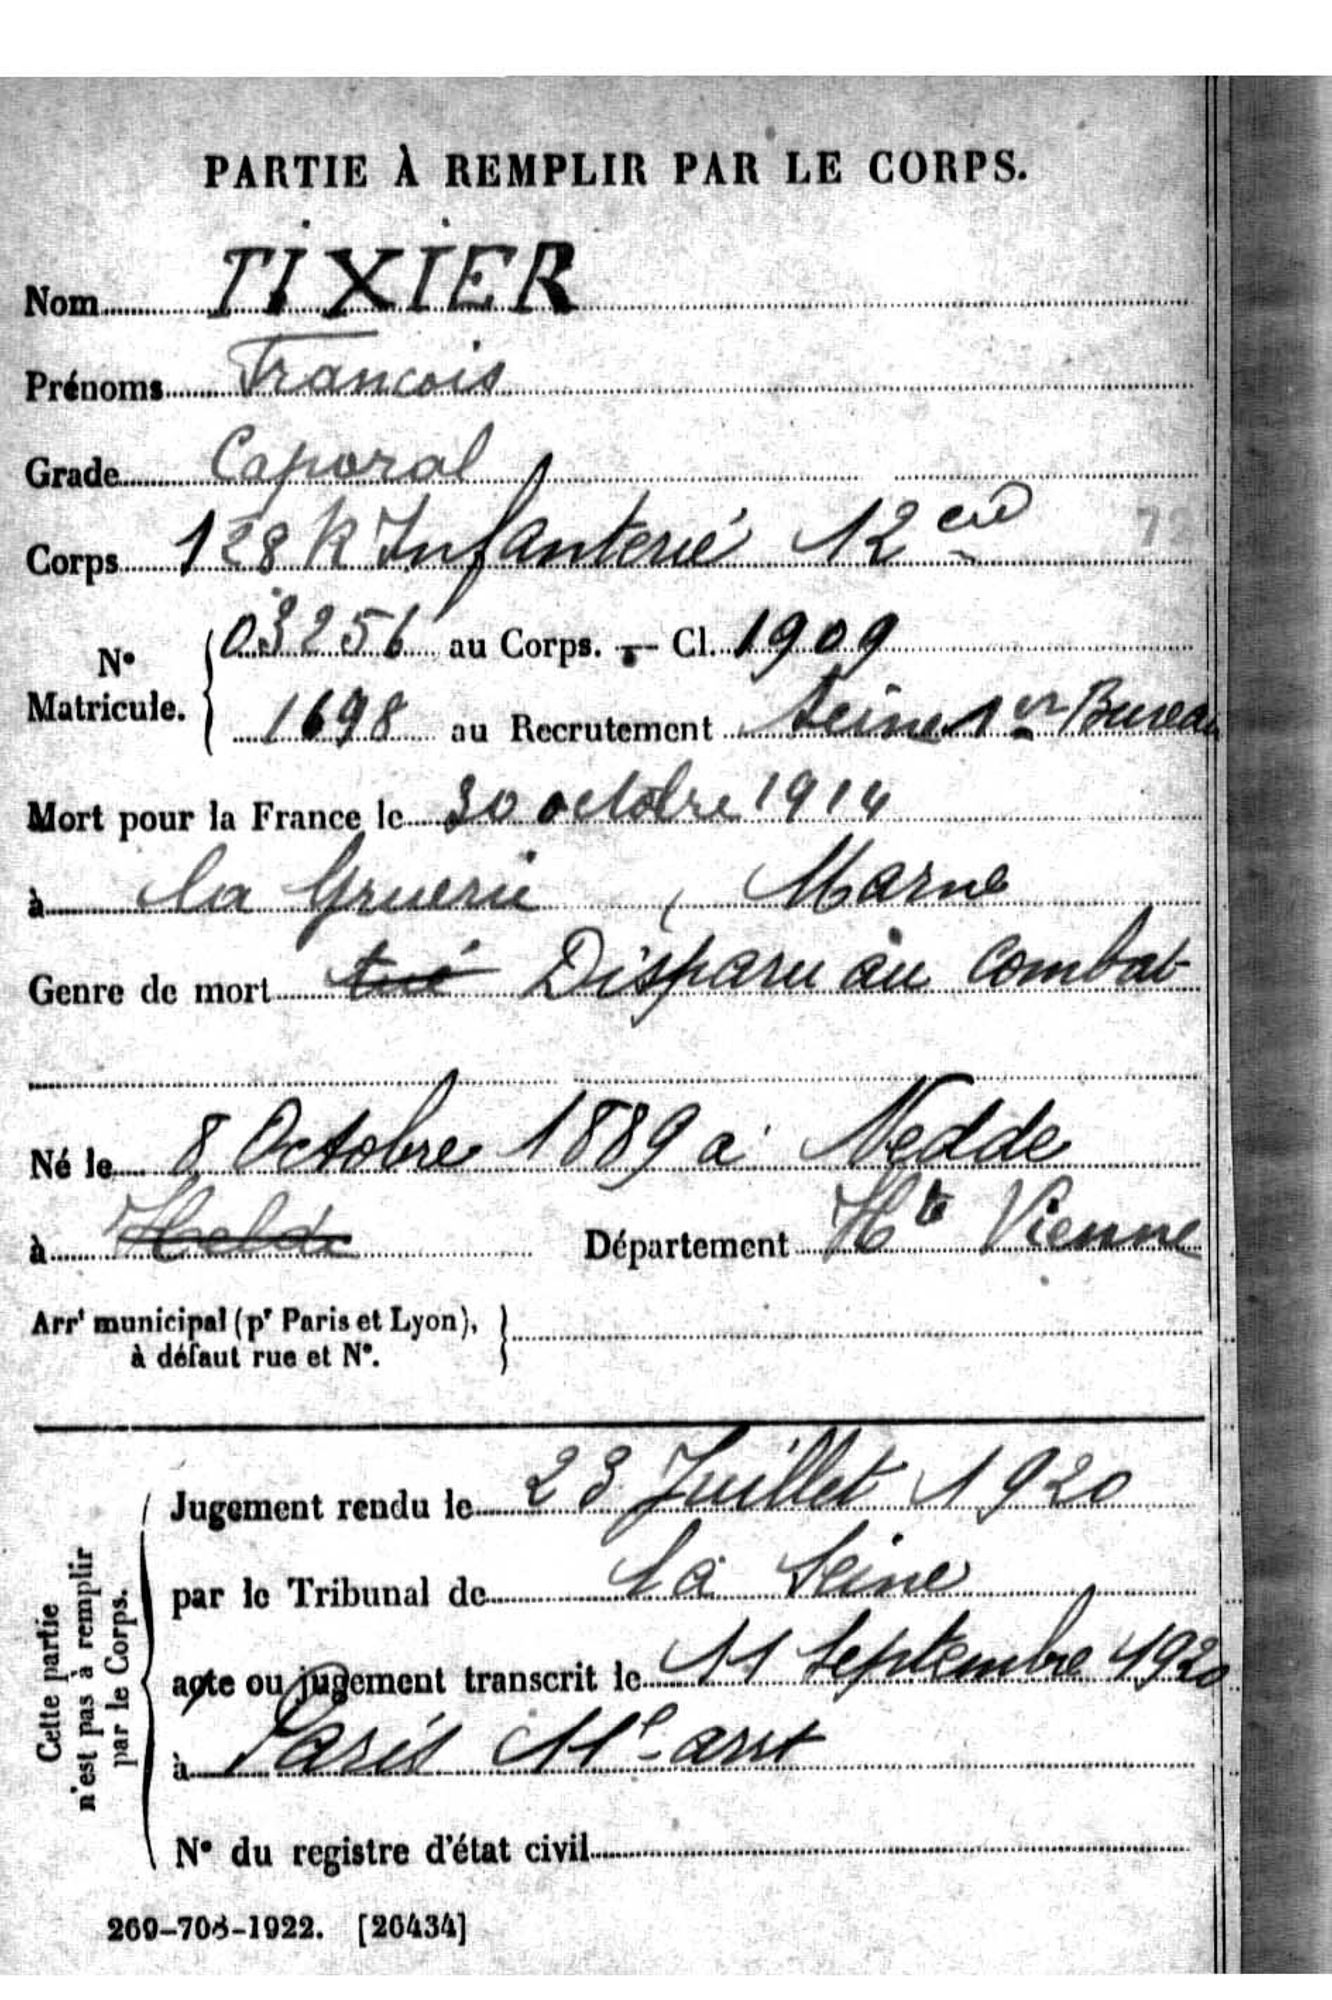 PARTIE À REMPLIR PAR LE CORPS.
Nom TIXIER
Prénoms Francois
Grade Caporal
Corps 128 R Infanterie 12 cie
N° Matricule. 03256 au Corps. — Cl. 1909
1698 au Recrutement Seine 1er Bureau
Mort pour la France le 30 octobre 1914
à la Gruerie, Marne
Genre de mort tué Disparu au combat
Né le 8 Octobre 1889 à Nedde
à Département Hte Vienne
Arrt municipal (pr Paris et Lyon),
à défaut rue et N°.
Cette partie n'est pas à remplir par le Corps.
Jugement rendu le 23 Juillet 1920
par le Tribunal de la Seine
acte ou jugement transcrit le 11 Septembre 1920
à Paris 11e arrt
N° du registre d'état civil
269-708-1922. [26434]